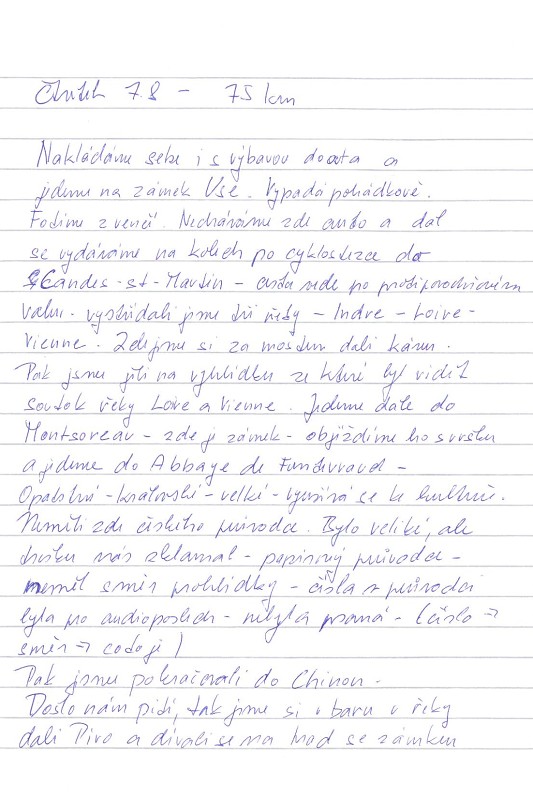 Čtvrtek 7.8 - 75 km
Nakládáme sebe i s výbavou do auta a
jedeme na zámek Usé. Vypadá pohádkově.
Fotíme zvenčí. Necháváme zde auto a dál
se vydáváme na kolech po cyklostezce do
Candes-st-Martin - cesta vede po protipovodňovém
valu. vystřídali jsme tři řeky - Indre - Loire -
Vienne. Zde jsme si za mostem dali kávu.
Pak jsme jeli na vyhlídku ze které byl vidět
soutok řeky Loire a Vienne. Jedeme dále do
Montsoreau - zde je zámek - objíždíme ho svrchu
a jedeme do Abbaye de
Opatství - královské - velké - využívá se ke kultuře.
Neměli zde českého průvodce. Bylo veliké, ale
trochu nás zklamal - papírový průvodce -
neměl směr prohlídky - čísla z průvodce
byla pro audioposlech - nebyla psaná - (číslo ⇒
směr ⇒ co to je)
Pak jsme pokračovali do Chinon -
Došlo nám pití, tak jsme si v baru u řeky
dali Pivo a dívali se na hrad se zámkem